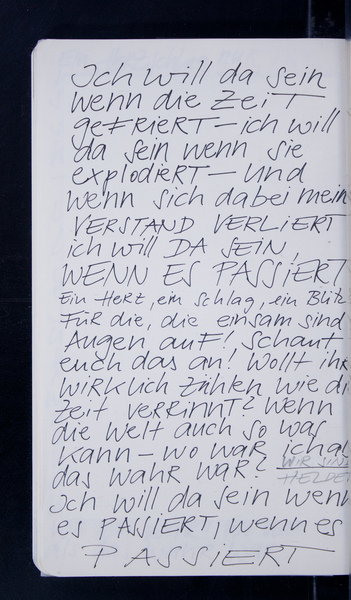 Ich will da sein
wenn die Zeit
geFRIERT – ich will
da sein wenn sie
explodiERT – und
wenn sich dabei mein
VERSTAND VERLIERT
ich will DA SEIN,
WENN ES PASSIERT
Ein Herz, ein Schlag, ein Blitz
FÜR die, die einsam sind
Augen auF! Schaut
euch das an! Wollt ihr
WiRKlich zählen wie di
Zeit VERRiNNT? Wenn
die Welt auch so was
kann – wo war ich al
das wahr war? WIR SIND
HELDE
Ich will da sein wenn
es PASSIERT, wenn es
PASSIERT